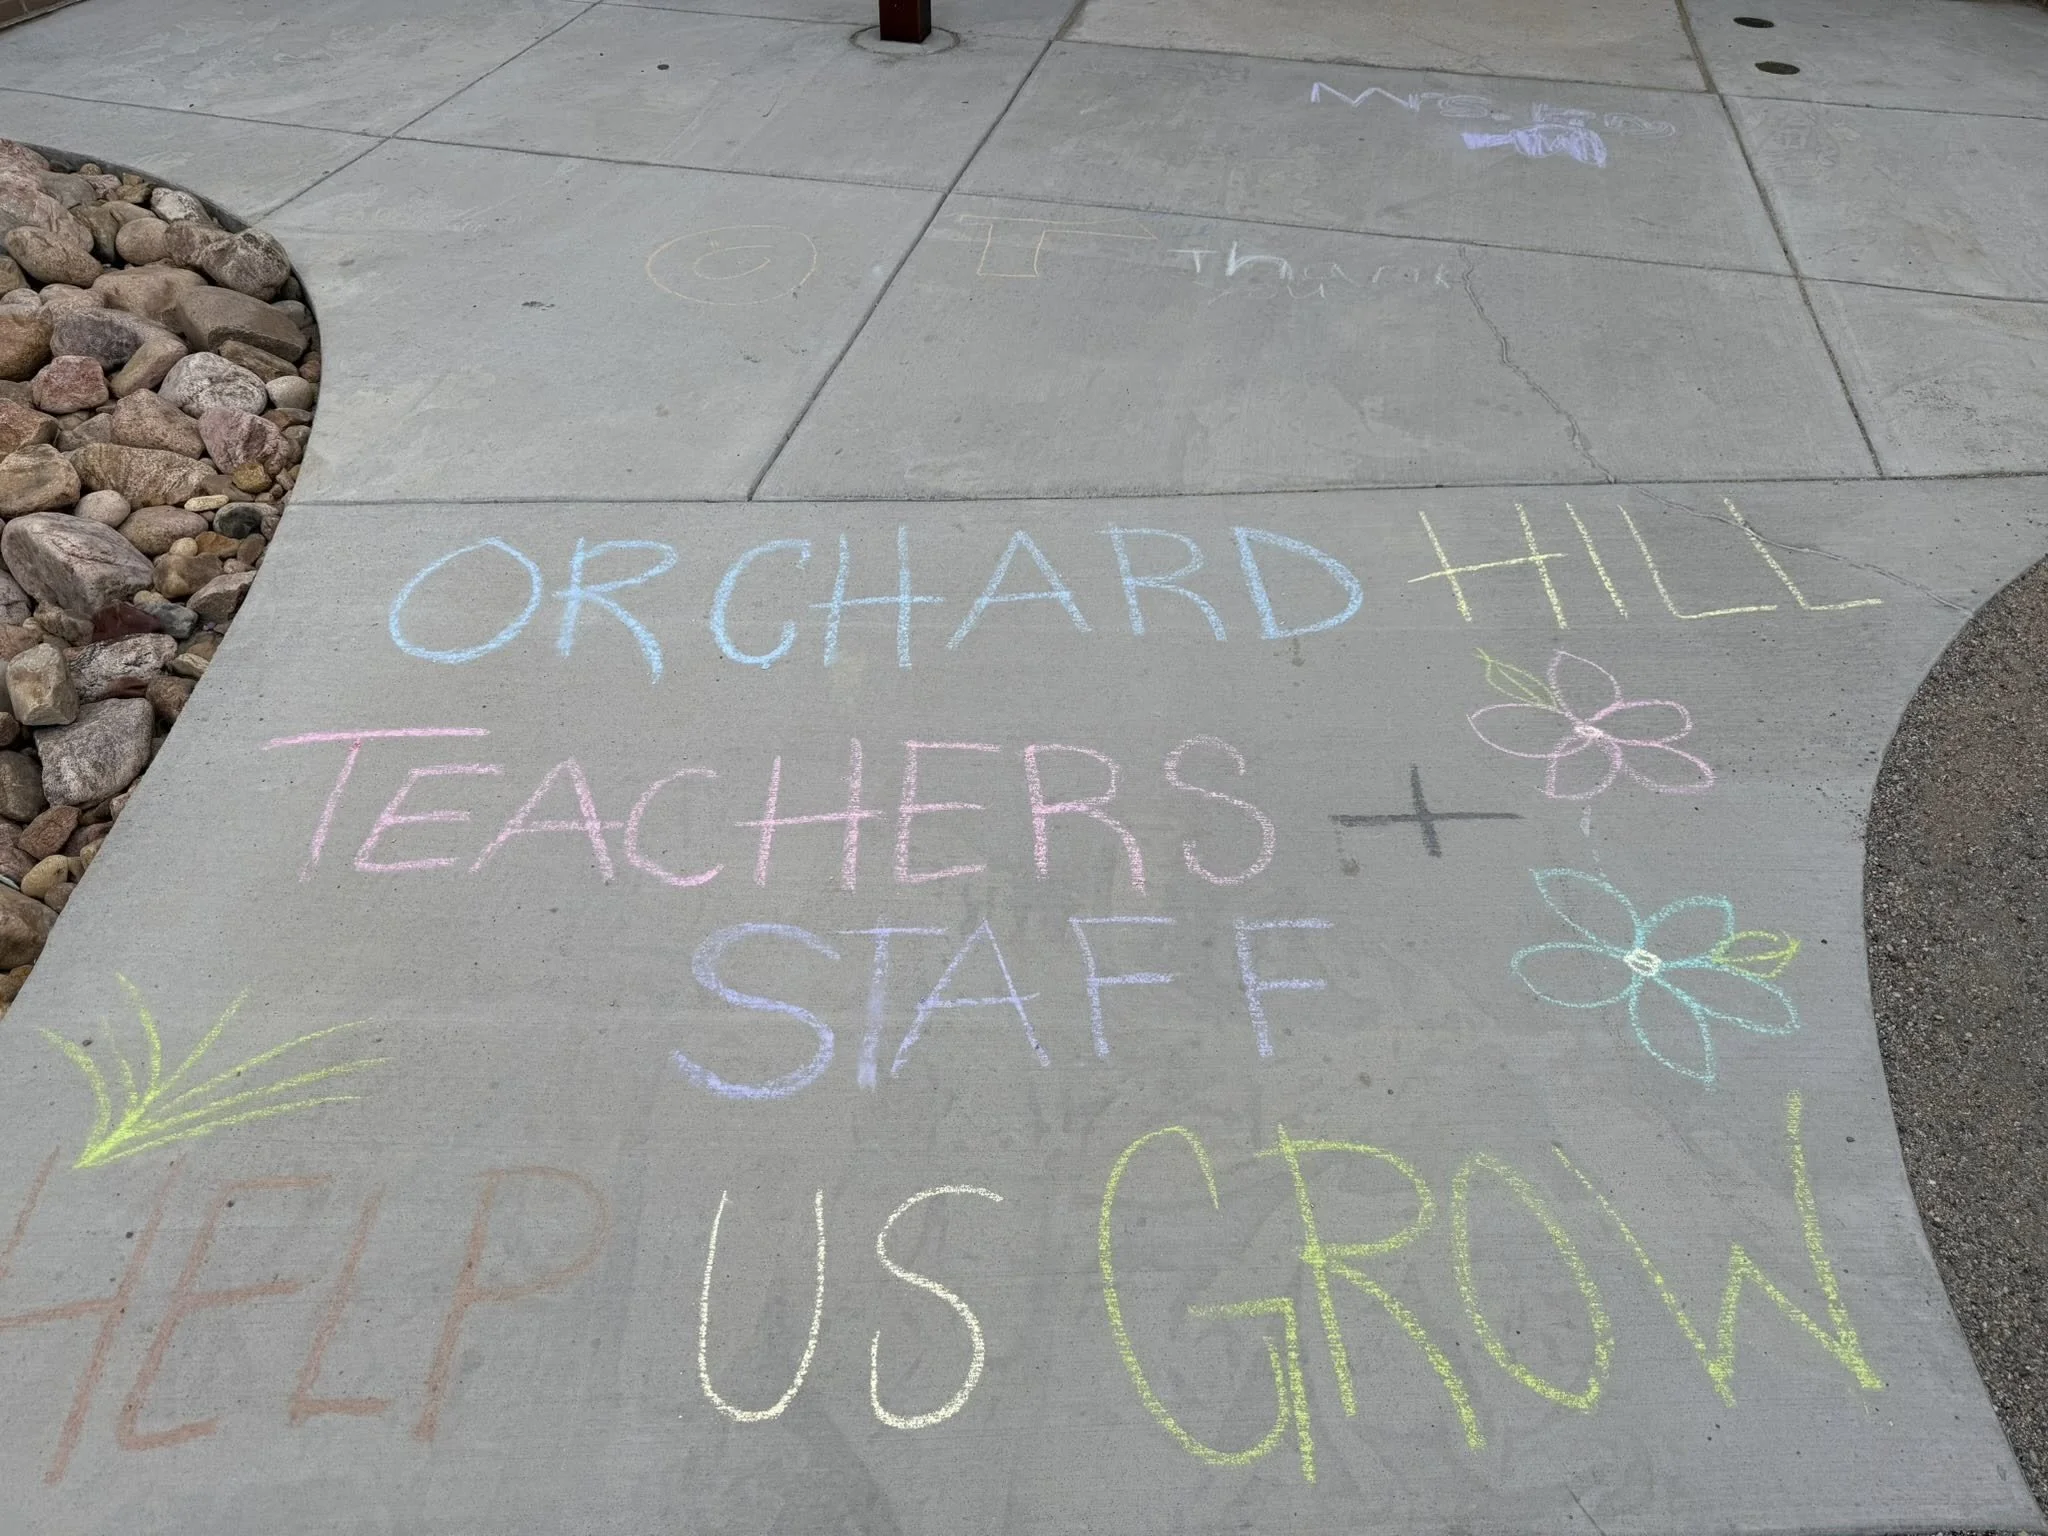 Mrs.
T Thank
you
ORCHARD HILL
TEACHERS +
STAFF
HELP US GROW